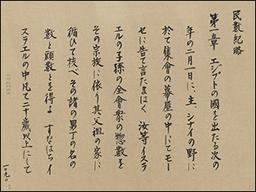 民数紀略
第一章 エジプトの國を出たる次の
年の二月一日に、主、シナイの野に
於て集會の幕屋の中にてモー
セに告て言たまはく 汝等イスラ
エルの子孫の全會衆の惣数を
その宗族に依り其父祖の家に
循ひて核べその諸の男丁の名の
数と頭数とを得よ すなはちイ
スラエルの中凡て二十歳以上にして